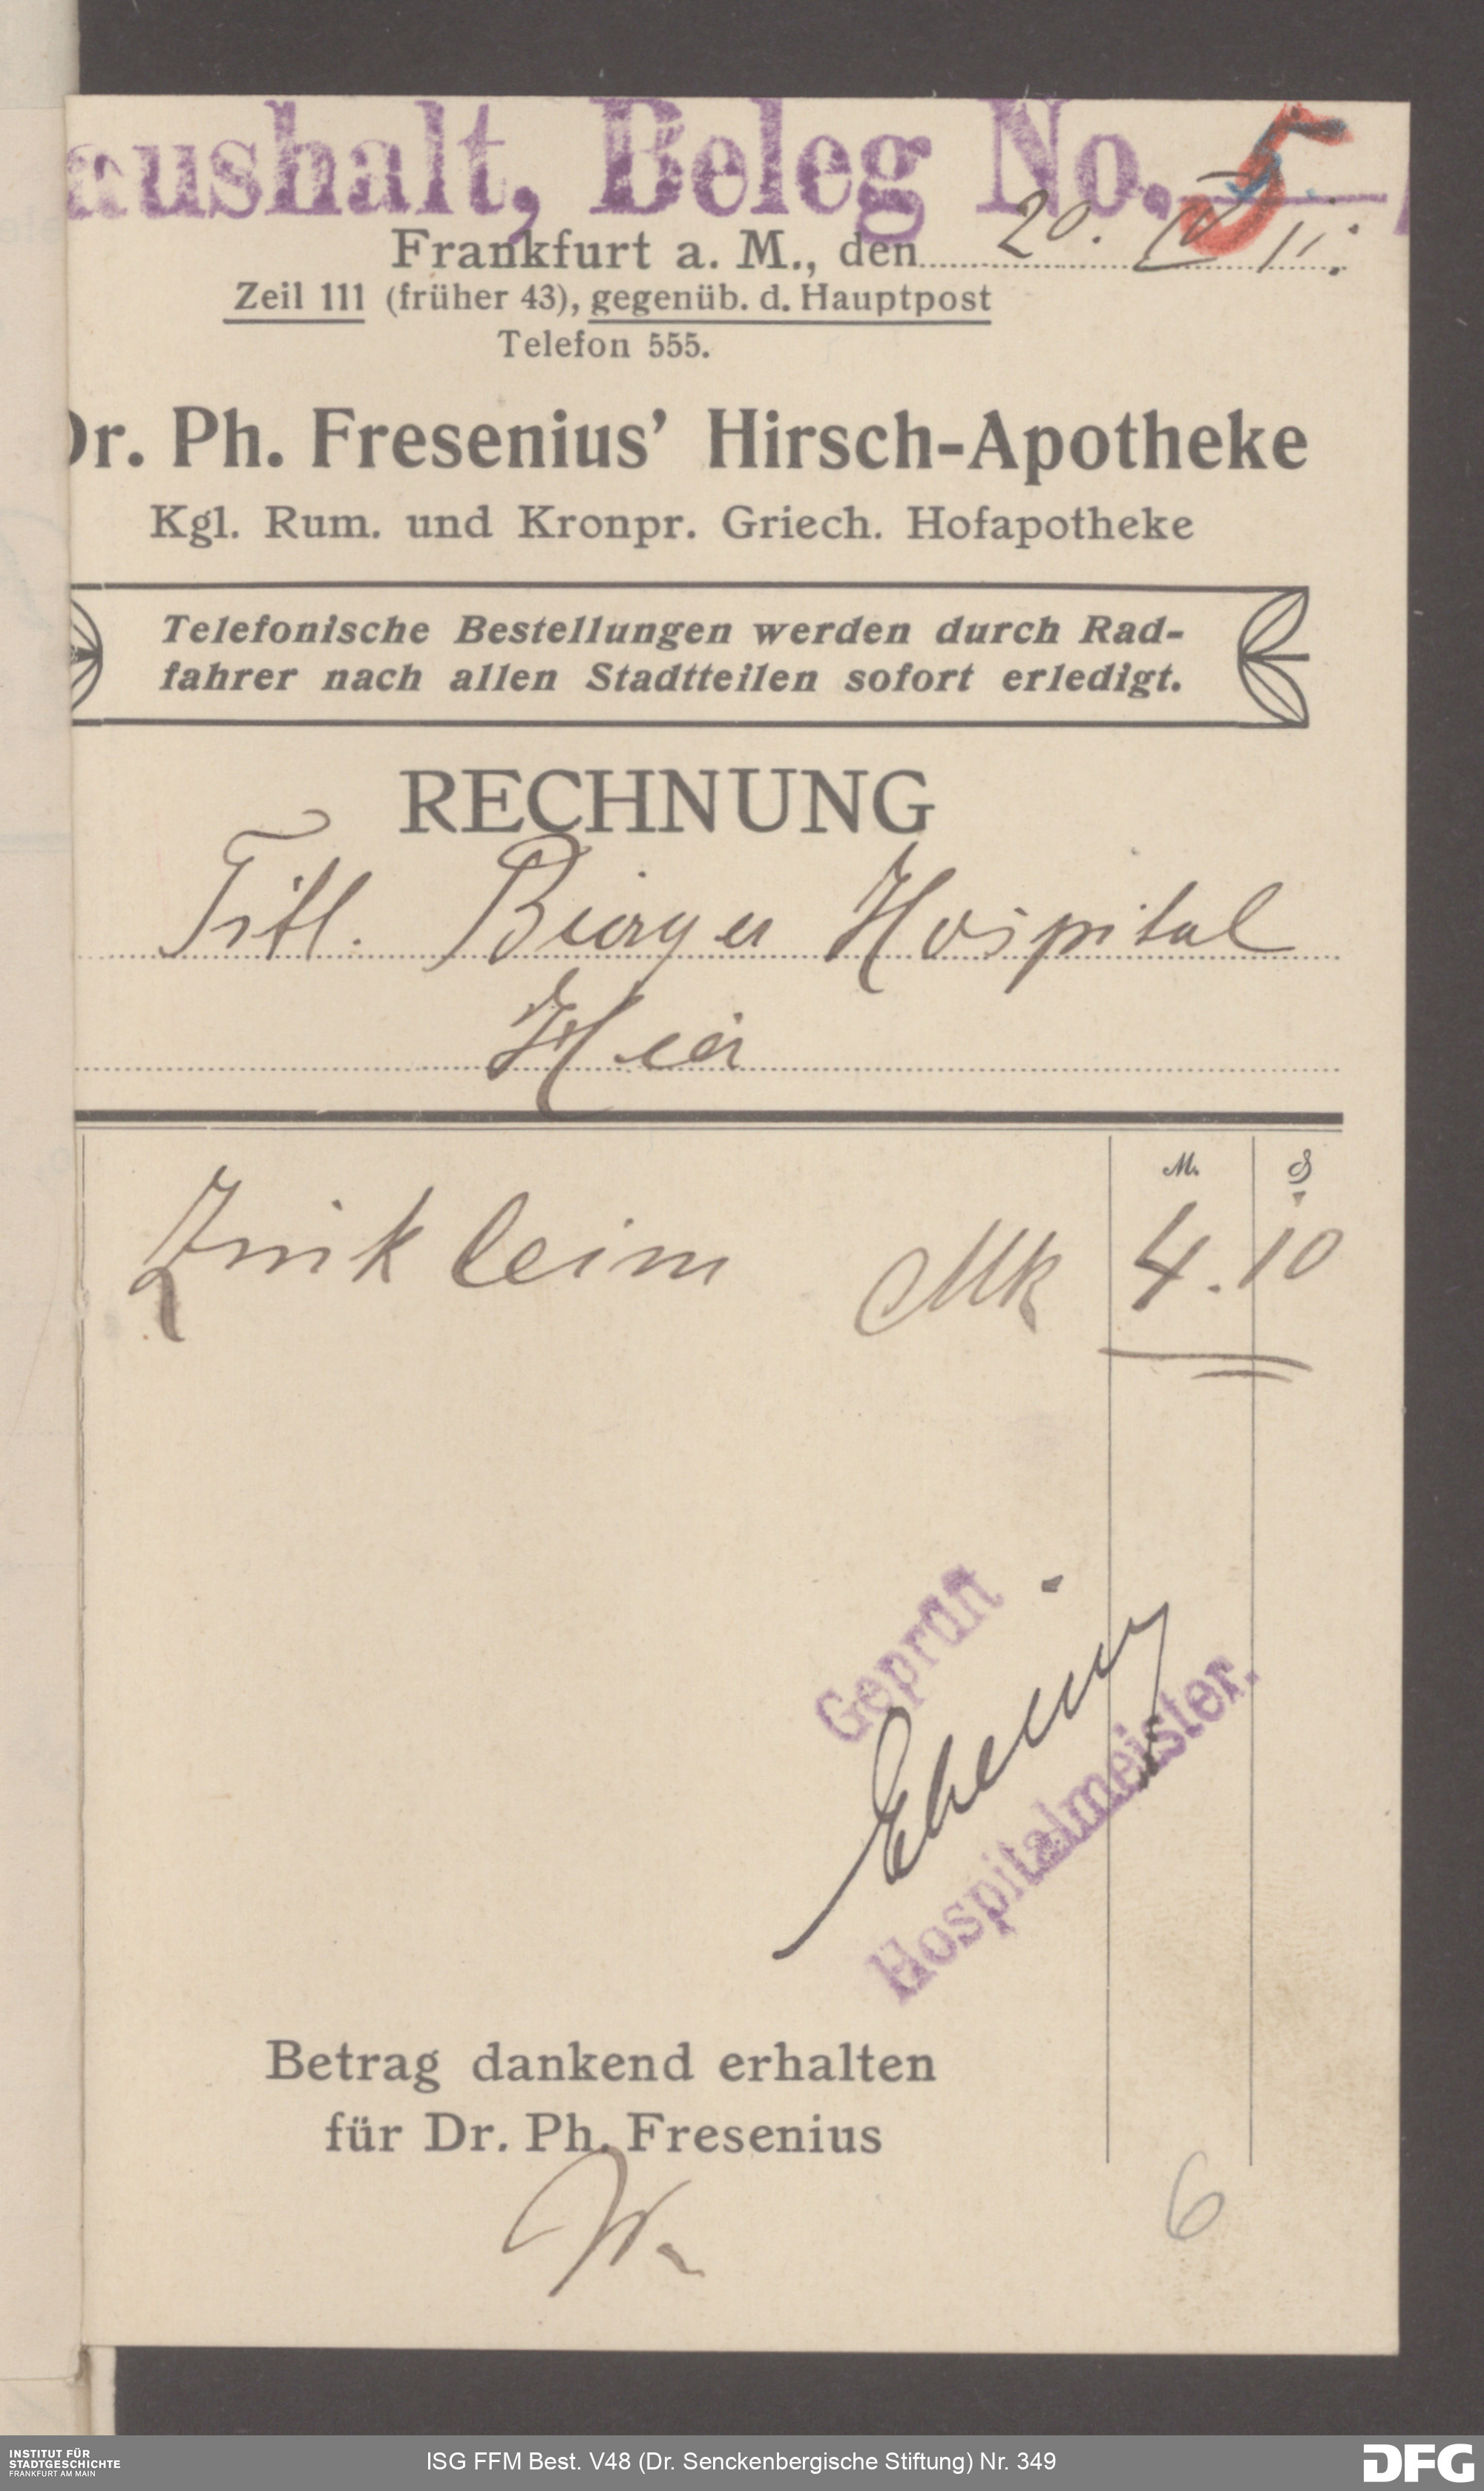 aushalt, Beleg No. 5
Frankfurt a. M., den 20. IV 11.
Zeil 111 (früher 43), gegenüb. d. Hauptpost
Telefon 555.
Dr. Ph. Fresenius' Hirsch-Apotheke
Kgl. Rum. und Kronpr. Griech. Hofapotheke
Telefonische Bestellungen werden durch Rad-
fahrer nach allen Stadtteilen sofort erledigt.
RECHNUNG
Titl. Bürger Hospital
Hier
M. ₰
Zinkleim Mk 4.10
Geprüft
Hospitalmeister.
Betrag dankend erhalten
für Dr. Ph. Fresenius
6
INSTITUT FÜR
STADTGESCHICHTE
FRANKFURT AM MAIN
ISG FFM Best. V48 (Dr. Senckenbergische Stiftung) Nr. 349
DFG